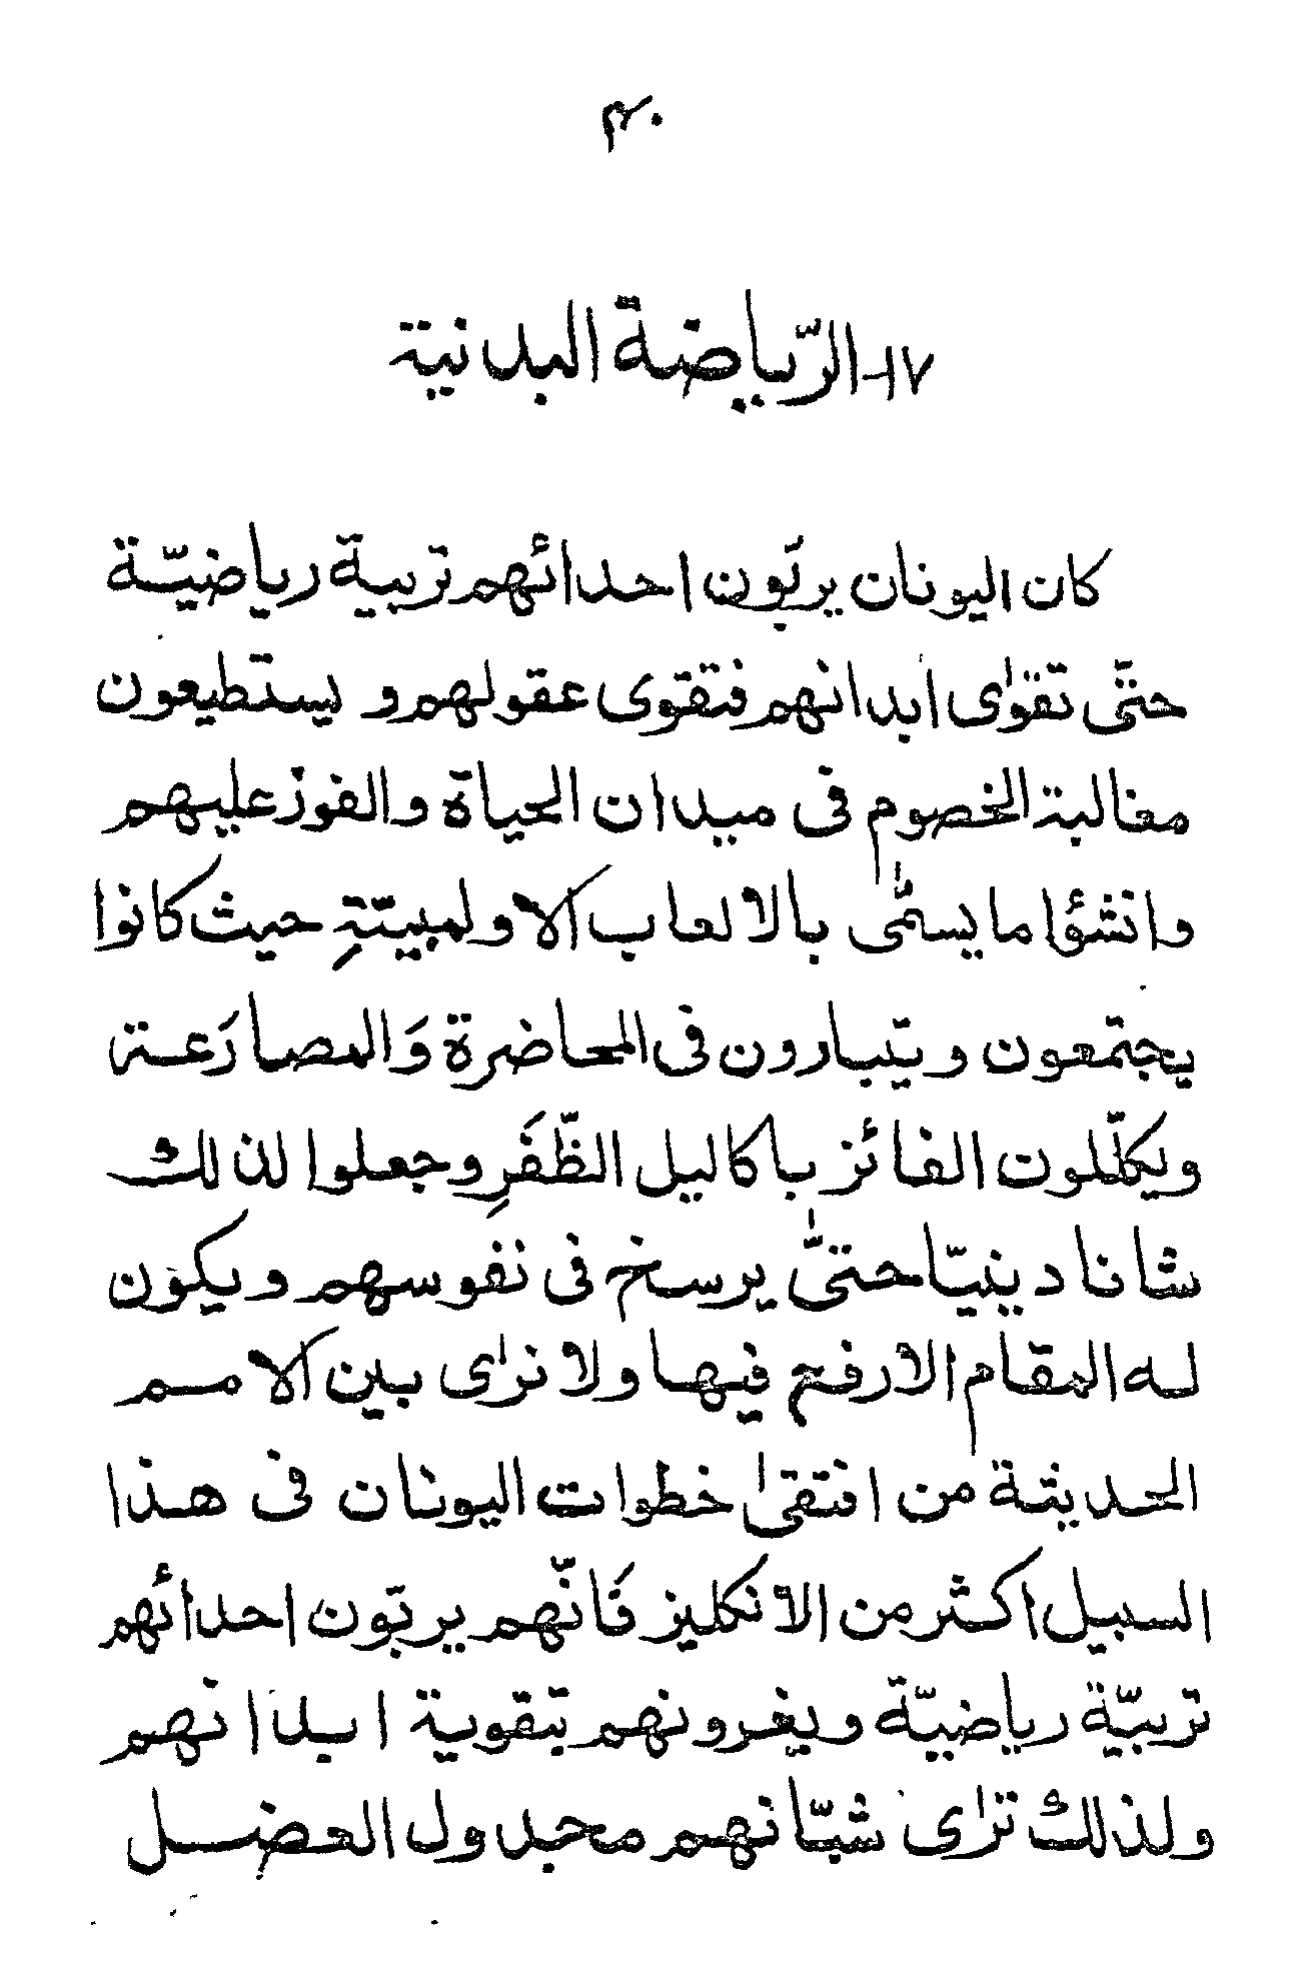 ٤٠
١٧- الرّياضة البدنية
كان اليونان يربّون احداثهم تربية رياضيّة
حتّى تقوٰى ابدانهم فتقوى عقولهم و يستطيعون
مغالبة الخصوم فى ميدان الحياة والفوز عليهم
وانشؤا ما يسمّٰى بالالعاب الاولمبيّةِ حيث كانوا
يجتمعون ويتبارون فى المحاضرة وَالمصارَعة
ويكلّلون الفائز باكاليل الظّفَرِ وجعلوا لذلك
شانا دينيّا حتّٰى يرسخ فى نفوسهم ويكون
له المقام الارفع فيها ولا نرٰى بين الامم
الحديثة من اقتفىٰ خطوات اليونان فى هذا
السبيل اكثر من الانكليز فَانّهم يربّون احداثهم
تربيّة رياضيّة ويغرونهم بتقوية ابدانهم
ولذلك ترٰى شبّانهم مجدول العضل